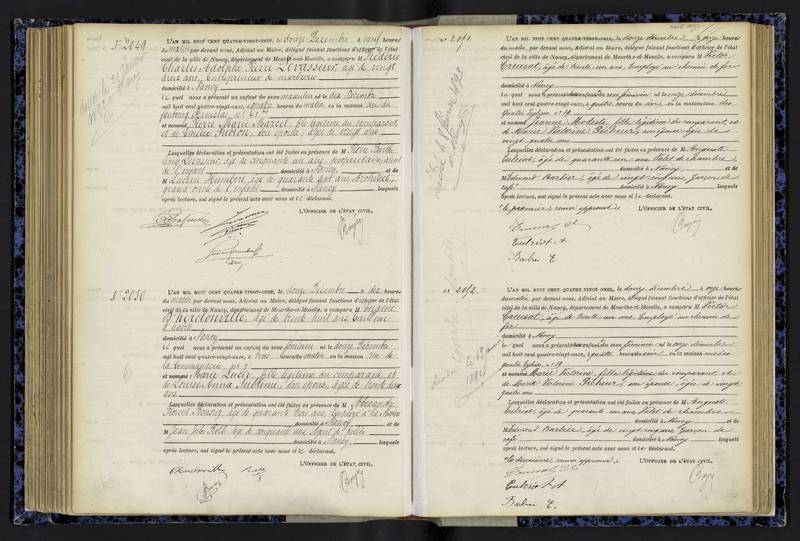 N° 2049
L'AN MIL HUIT CENT QUATRE-VINGT-ONZE, le douze Décembre à neuf heures
du matin par devant nous, Adjoint au Maire, délégué faisant fonctions d'officier de l'état
civil de la ville de Nancy, département de Meurthe-et-Moselle, a comparu M. Frédéric
Charles Adolphe Pierre Levasseur, âgé de vingt
deux ans, entrepreneur de marbrerie
domicilié à Nancy
le quel nous a présenté un enfant du sexe masculin né le dix Décembre
mil huit cent quatre-vingt-onze, à quatre heures du matin en la maison rue du
faubourg Stanislas, n° 21
et nommé Pierre Marie Marcel, fils légitime du comparant,
et de Emilie son épouse, âgée de vingt deux ans
Lesquelles déclaration et présentation ont été faites en présence de M. Pierre Barthé
lemy Levasseur, âgé de cinquante un ans, propriétaire, aïeul
de l'enfant domicilié à Nancy, et de
M. Lucien Humbert, âgé de quarante sept ans Architecte,
grand oncle de l'enfant domicilié à Nancy lesquels
après lecture, ont signé le présent acte avec nous et le déclarant.
L'OFFICIER DE L'ÉTAT CIVIL,
N° 2050
L'AN MIL HUIT CENT QUATRE-VINGT-ONZE, le douze Décembre à dix heures
du matin par devant nous, Adjoint au Maire, délégué faisant fonctions d'officier de l'état
civil de la ville de Nancy, département de Meurthe-et-Moselle, a comparu M.
âgé de trente huit ans, tailleur
d'habits
domicilié à Nancy
le quel nous a présenté un enfant du sexe féminin né le douze Décembre
mil huit cent quatre-vingt-onze, à trois heures du matin en la maison rue de
la Commanderie n° 7
et nommé Marie Lucie, fille légitime du comparant, et
de Louise Anna son épouse, âgée de trente deux
ans
Lesquelles déclaration et présentation ont été faites en présence de M. Alexandre
âgé de quarante trois ans, Employé à la Mairie
domicilié à Nancy et de
M. Jean âgé de cinquante ans, Agent de police
domicilié à Nancy, lesquels
après lecture, ont signé le présent acte avec nous et le déclarant.
L'OFFICIER DE L'ÉTAT CIVIL,
N° 2051
L'AN MIL HUIT CENT QUATRE-VINGT-ONZE, le douze décembre à onze heures
du matin par devant nous, Adjoint au Maire, délégué faisant fonctions d'officier de l'état
civil de la ville de Nancy, département de Meurthe-et-Moselle, a comparu M. Victor
âgé de trente un ans, Employé au chemin de fer
domicilié à Nancy
le quel nous a présenté un enfant du sexe féminin né le onze décembre
mil huit cent quatre-vingt-onze, à quatre heures du soir en la maison rue des
Quatre Eglises, n° 19
et nommé Jeanne Modeste, fille légitime du comparant, et
de Marie Victorine Pécheur, son épouse âgée de
vingt-quatre ans
Lesquelles déclaration et présentation ont été faites en présence de M. Auguste
âgé de quarante un ans, Valet de chambre,
domicilié à Nancy et de
M. Edmond Barbier, âgé de vingt-cinq ans, Garçon de
café domicilié à Nancy lesquels
après lecture, ont signé le présent acte avec nous et le déclarant.
Le premier renvoi approuvé
L'OFFICIER DE L'ÉTAT CIVIL,
Barbier E.
N° 2052
L'AN MIL HUIT CENT QUATRE-VINGT-ONZE, le douze décembre à onze heures
du matin par devant nous, Adjoint au Maire, délégué faisant fonctions d'officier de l'état
civil de la ville de Nancy, département de Meurthe-et-Moselle, a comparu M. Victor
âgé de trente un ans, Employé au chemin de
fer
domicilié à Nancy
le quel nous a présenté un enfant du sexe féminin né le onze décembre
mil huit cent quatre-vingt-onze, à quatre heures du soir en la maison rue des
Quatre Eglises, n° 19
et nommé Marie Victorine, fille légitime du comparant, et
de Marie Victorine Pécheur, son épouse, âgée de vingt
quatre ans
Lesquelles déclaration et présentation ont été faites en présence de M. Auguste
âgé de quarante un ans, Valet de chambre
domicilié à Nancy et de
M. Edmond Barbier, âgé de vingt-cinq ans Garçon de
café domicilié à Nancy lesquels
après lecture, ont signé le présent acte avec nous et le déclarant.
Le deuxième renvoi approuvé
L'OFFICIER DE L'ÉTAT CIVIL,
Barbier E.